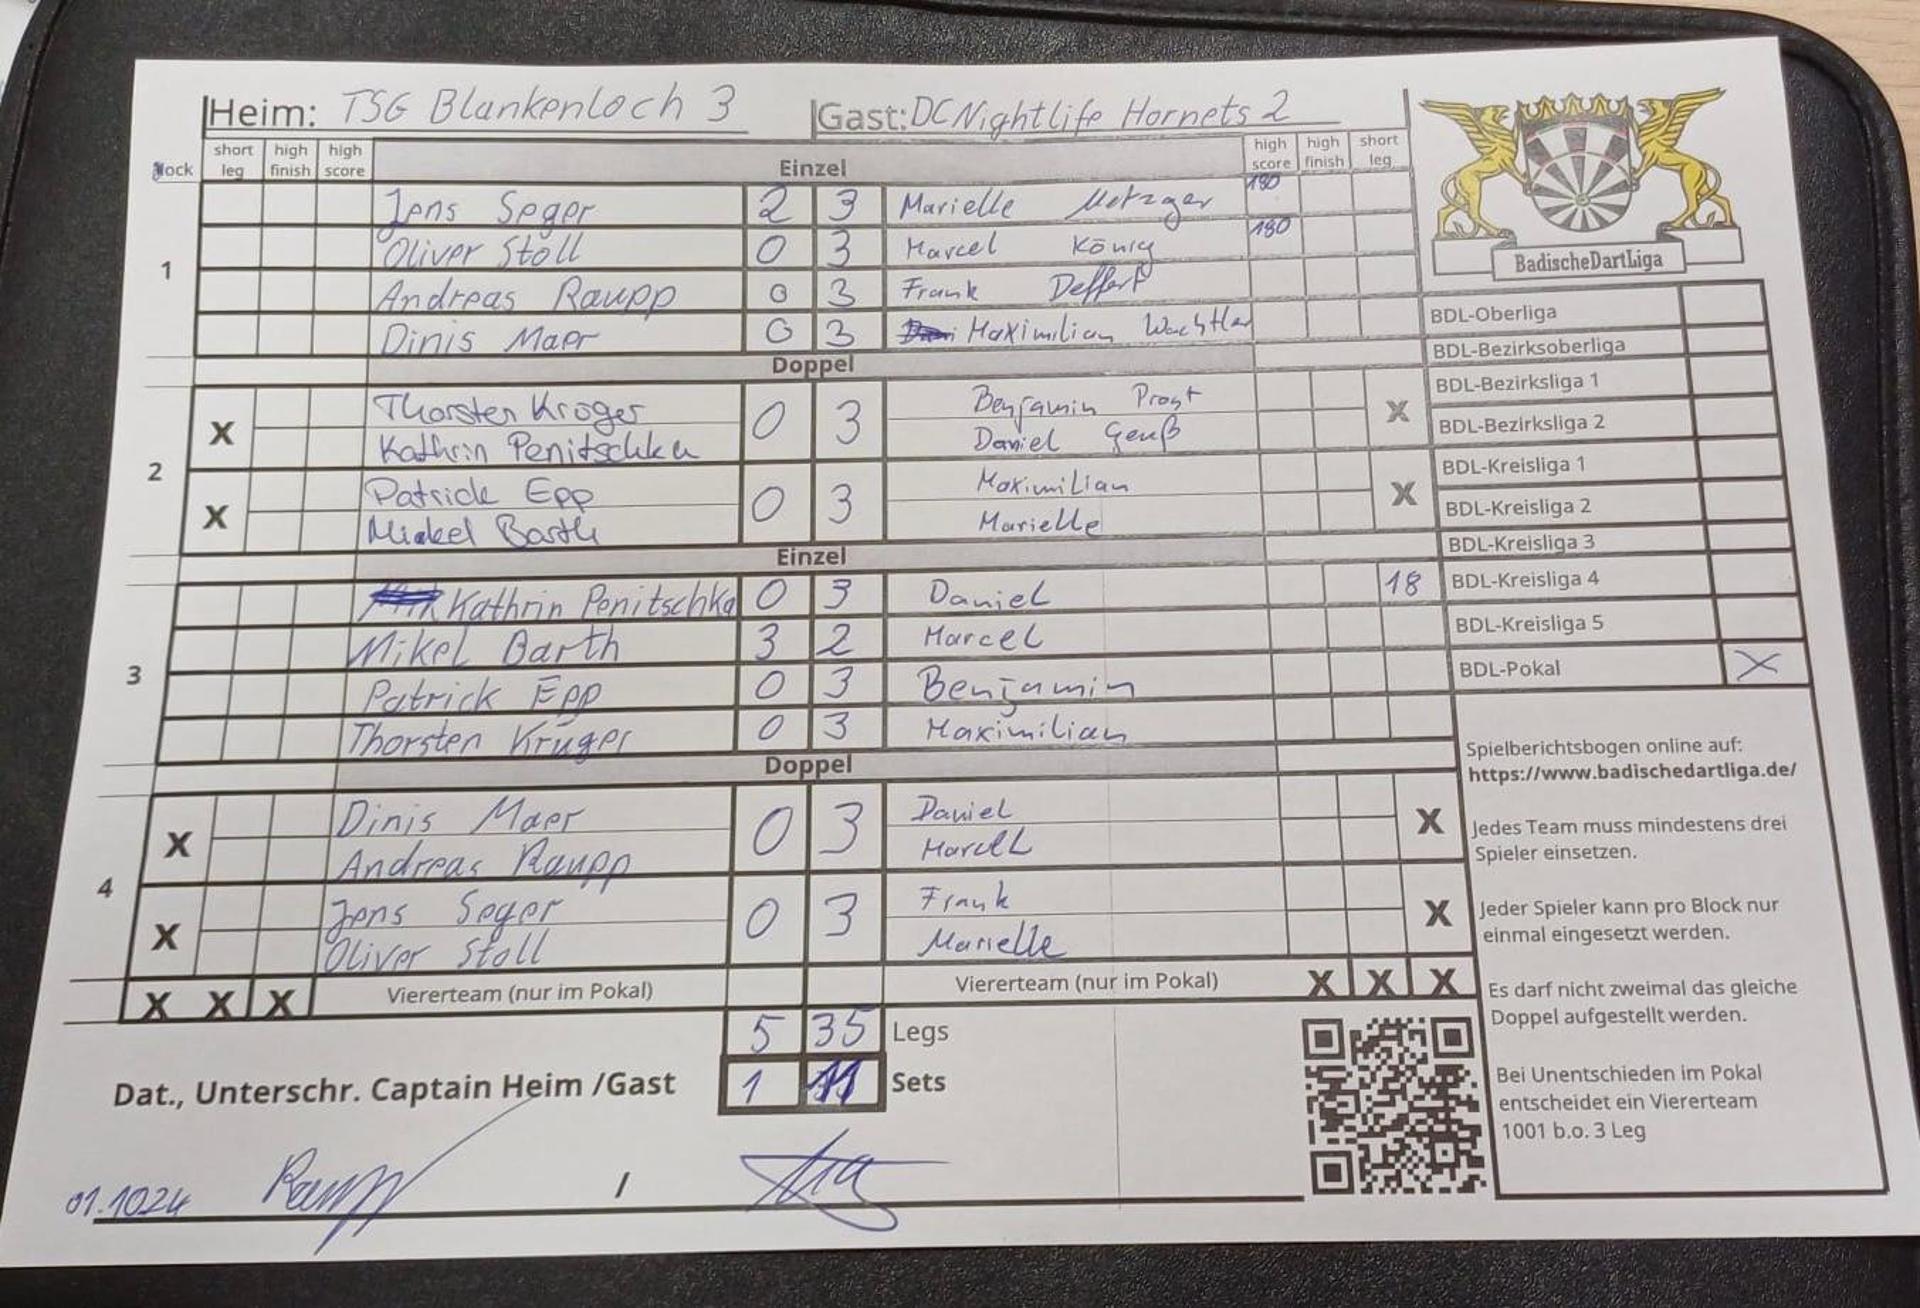 Heim: TSG Blankenloch 3 Gast: DC Nightlife Hornets 2
Block short leg high finish high score Einzel high score high finish short leg
Jens Seger 2 3 Marielle Metzger 180
Oliver Stoll 0 3 Marcel König 180
1
Andreas Raupp 0 3 Frank Deffert
Dinis Maer 0 3 Maximilian Wachtler
Doppel
BadischeDartLiga
BDL-Oberliga
BDL-Bezirksoberliga
BDL-Bezirksliga 1
BDL-Bezirksliga 2
BDL-Kreisliga 1
BDL-Kreisliga 2
BDL-Kreisliga 3
BDL-Kreisliga 4
BDL-Kreisliga 5
BDL-Pokal X
2
X Thorsten Kröger 0 3 Benjamin Probst X
Kathrin Penitschka Daniel Geuß
X Patrick Epp 0 3 Maximilian X
Mickel Barth Marielle
Einzel
3
Kathrin Penitschka 0 3 Daniel 18
Mikel Barth 3 2 Marcel
Patrick Epp 0 3 Benjamin
Thorsten Krüger 0 3 Maximilian
Doppel
4
X Dinis Maer 0 3 Daniel X
Andreas Raupp Marcel
X Jens Seger 0 3 Frank X
Oliver Stoll Marielle
X X X Viererteam (nur im Pokal) Viererteam (nur im Pokal) X X X
5 35 Legs
1 11 Sets
Dat., Unterschr. Captain Heim /Gast
01.1024 Raupp /
Spielberichtsbogen online auf:
https://www.badischedartliga.de/
Jedes Team muss mindestens drei
Spieler einsetzen.
Jeder Spieler kann pro Block nur
einmal eingesetzt werden.
Es darf nicht zweimal das gleiche
Doppel aufgestellt werden.
Bei Unentschieden im Pokal
entscheidet ein Viererteam
1001 b.o. 3 Leg